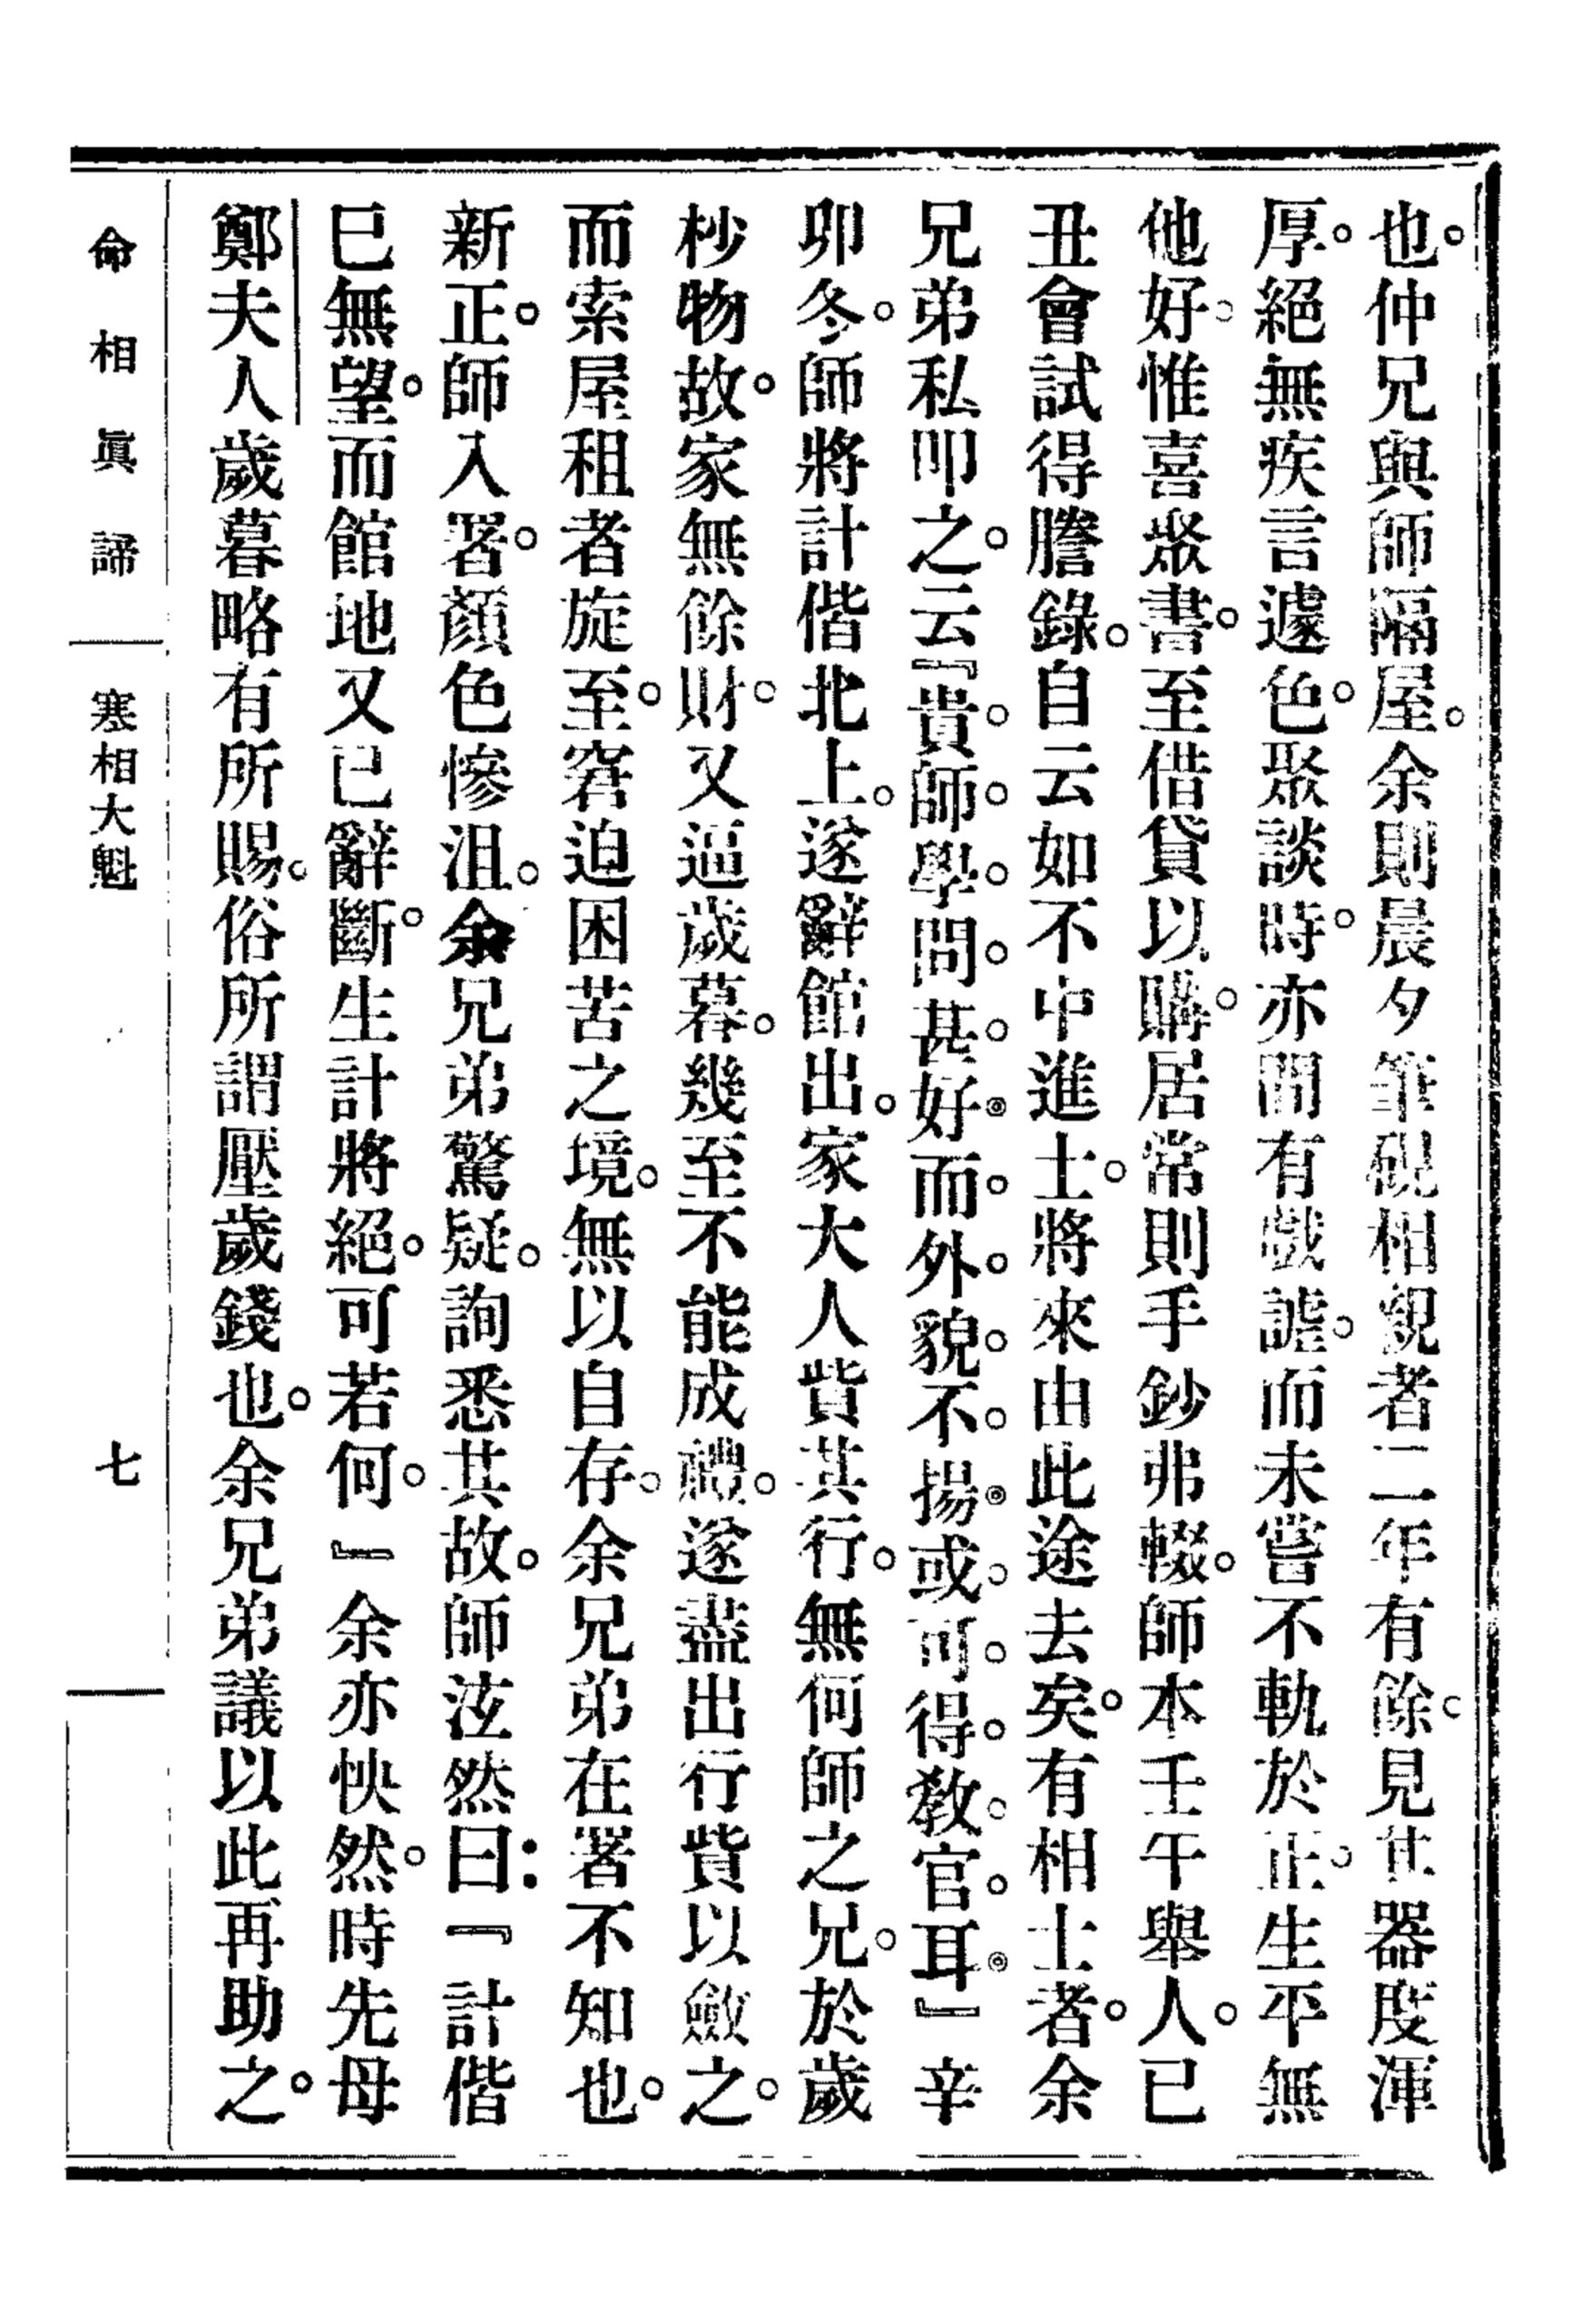 也。仲兄與師隔屋。余則晨夕筆硯相親者二年有餘。見其器度渾
厚。絕無疾言遽色。聚談時。亦間有戲謔。而未嘗不軌於正。生平無
他好。惟喜聚書。至借貸以購。居常則手鈔弗輟。師本壬午舉人。已
丑會試得謄錄。自云如不中進士。將來由此途去矣。有相士者。余
兄弟私叩之。云『貴師學問甚好而外貌不揚或可得敎官耳』辛
卯冬。師將計偕北上。遂辭館出。家大人貲其行。無何師之兄。於歲
杪物故。家無餘財。又逼歲暮。幾至不能成禮。遂盡出行貲以斂之。
而索屋租者旋至。窘迫困苦之境。無以自存。余兄弟在署不知也。
新正。師入署。顏色慘沮。余兄弟驚疑。詢悉其故。師泫然曰：『計偕
巳無望。而館地又已辭斷。生計將絕。可若何。』余亦怏然。時先母
鄭夫人歲暮略有所賜。俗所謂壓歲錢也。余兄弟議以此再助之。
命相眞諦 寒相大魁 七